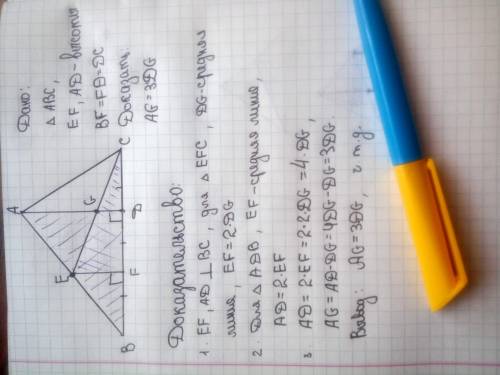 Дано:
△ ABC,
EF, AD - высоты
BF=FD=DC
Доказать:
AG=3DG
A
E
G
B
F
D
C
Доказательство:
1. EF, AD ⊥ BC, для △ EFC, DG-средняя
линия, EF=2DG
2. Для △ ADB, EF-средняя линия,
AD=2·EF
3. AD = 2·EF=2·2DG=4·DG,
AG=AD-DG=4DG-DG=3DG.
Вывод: AG=3DG, ч т.д.